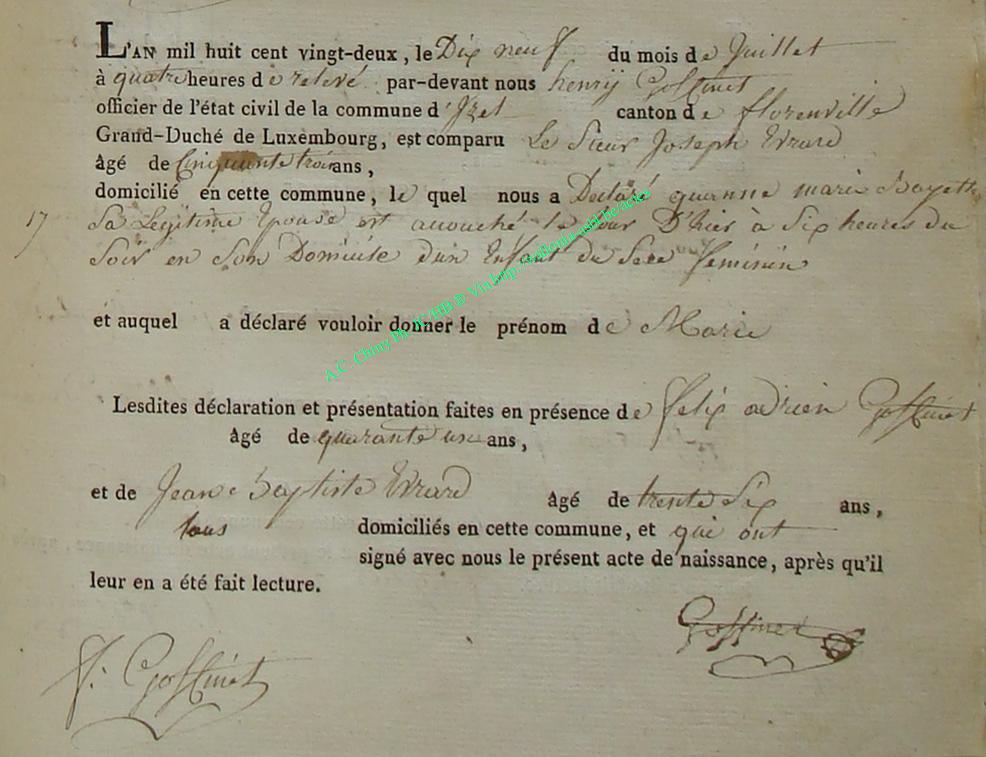 L'AN mil huit cent vingt-deux, le Dix neuf du mois de Juillet
à quatre heures de relevé par-devant nous henry Goffinet
officier de l'état civil de la commune d'Izel canton de florenville
Grand-Duché de Luxembourg, est comparu Le Sieur Joseph Evrard
âgé de Cinquante trois ans,
domicilié en cette commune, le quel nous a Declaré quanne marie Bayette
17 Sa Legitime Epouse est accouché le jour D'hier à Six heures du
Soir en Son Domicile d'un Enfant du Sexe feminin
et auquel a déclaré vouloir donner le prénom de Marie
Lesdites déclaration et présentation faites en présence de felix adrien Goffinet
âgé de quarante un ans,
et de Jean Baptiste Evrard âgé de trente Six ans,
tous domiciliés en cette commune, et qui ont
signé avec nous le présent acte de naissance, après qu'il
leur en a été fait lecture.
Goffinet
F. Goffinet